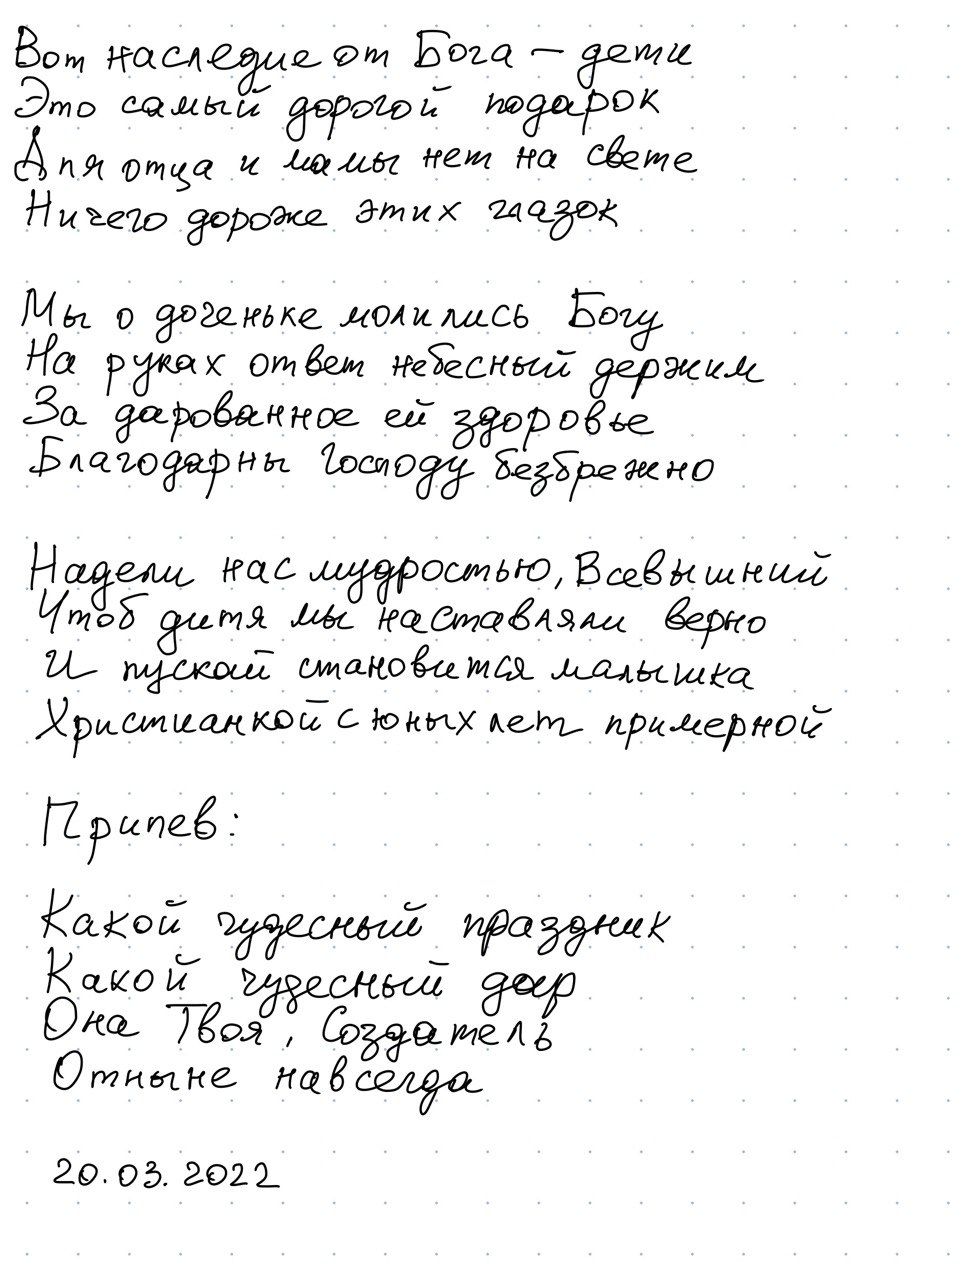 Вот наследие от Бога – дети
Это самый дорогой подарок
Для отца и мамы нет на свете
Ничего дороже этих глазок
Мы о доченьке молились Богу
На руках ответ небесный держим
За дарованное ей здоровье
Благодарны Господу безбрежно
Надели нас мудростью, Всевышний
Чтоб дитя мы наставляли верно
И пускай становится малышка
Христианкой с юных лет примерной
Припев:
Какой чудесный праздник
Какой чудесный дар
Она Твоя, Создатель
Отныне навсегда
20.03.2022